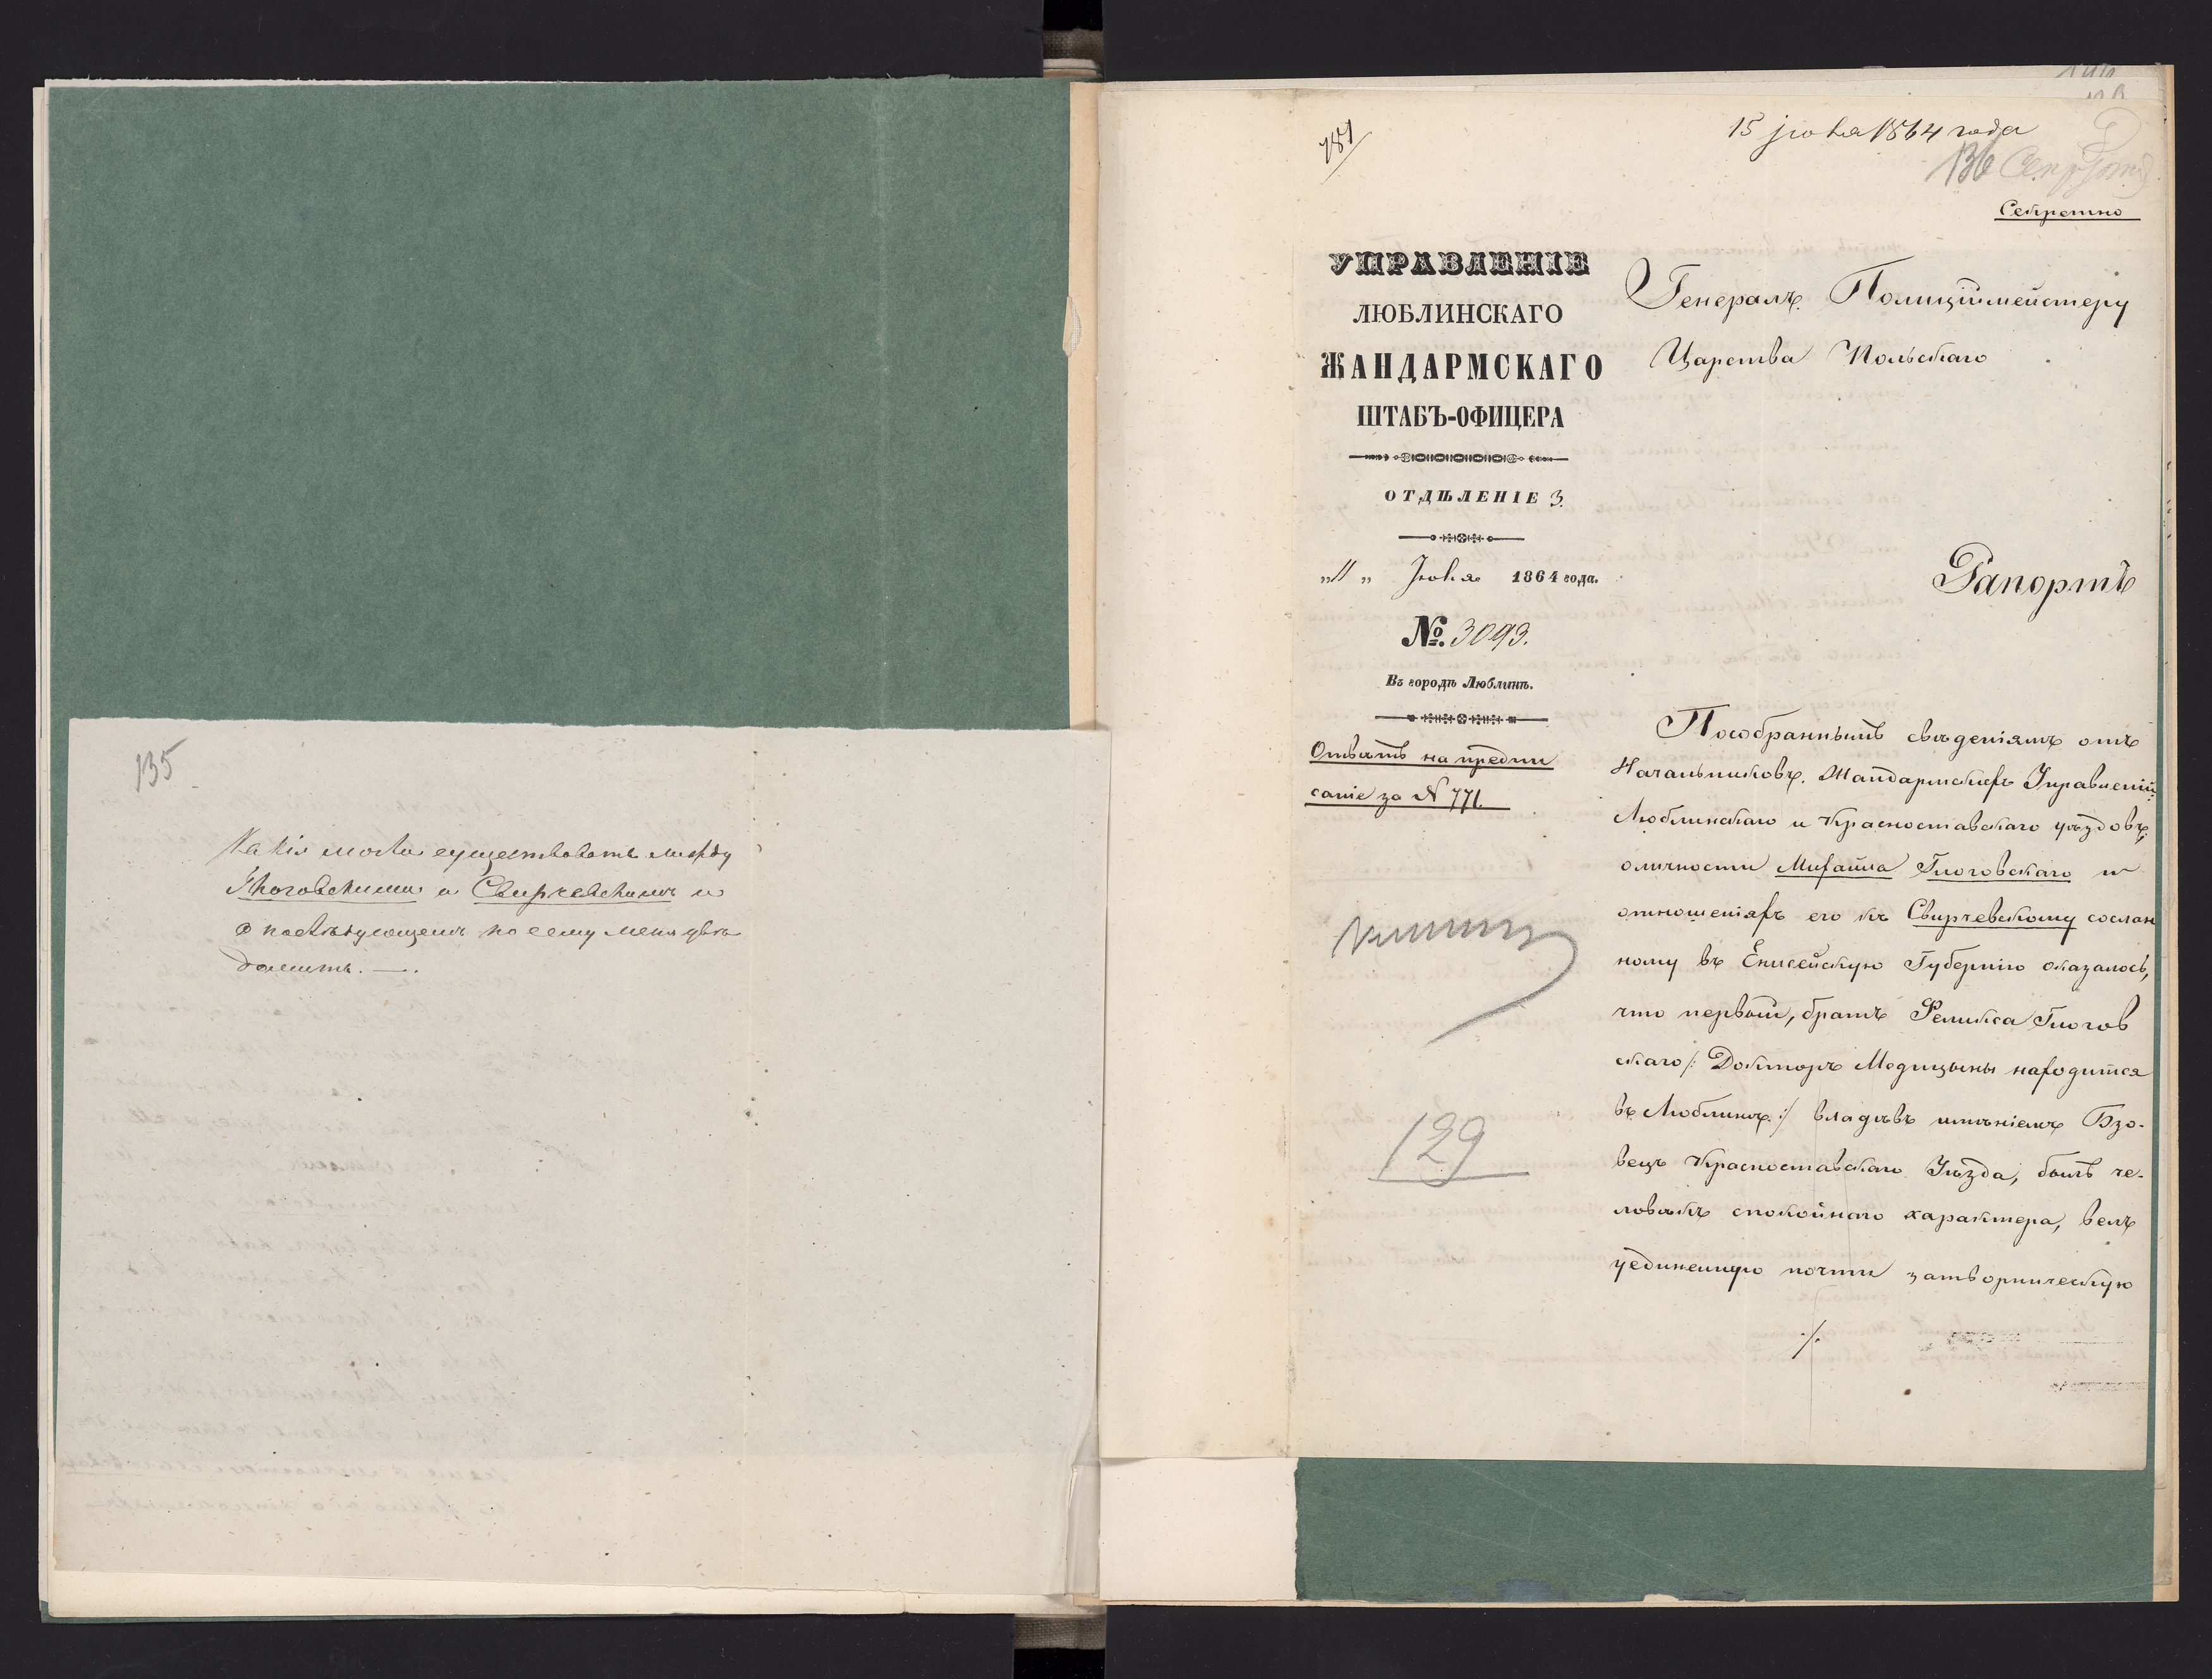 135
Какія могли существовать между
Глоговскими и Свирчевскимъ и
о послѣдующемъ по сему меня увѣ-
домить. —.
781
15 Іюня 1864 года
136
Секретно
УПРАВЛЕНІЕ
ЛЮБЛИНСКАГО
ЖАНДАРМСКАГО
ШТАБЪ-ОФИЦЕРА
ОТДѢЛЕНІЕ 3.
„11„ Іюня 1864 года.
№ 3093.
Въ городѣ Люблинѣ.
Отвѣтъ на предпи
саніе за № 771.
129
Генералъ Полиціймейстеру
Царства Польскаго
Рапортъ
Пособраннымъ свѣденіямъ отъ
Начальниковъ Жандармскихъ Управленій
Люблинскаго и Красноставскаго уѣздовъ,
оличности Михаила Глоговскаго и
отношеніяхъ его къ Свирчевскому сослан
ному въ Енисейскую Губернію оказалось,
что первый, братъ Феликса Глогов
скаго /: Докторъ Медицыны находится
въ Люблинѣ :/ владѣвъ имѣніемъ Бзо-
вецъ Красноставскаго Уѣзда, былъ че-
ловѣкъ спокойнаго характера, велъ
уединенную почти затворническую
./.